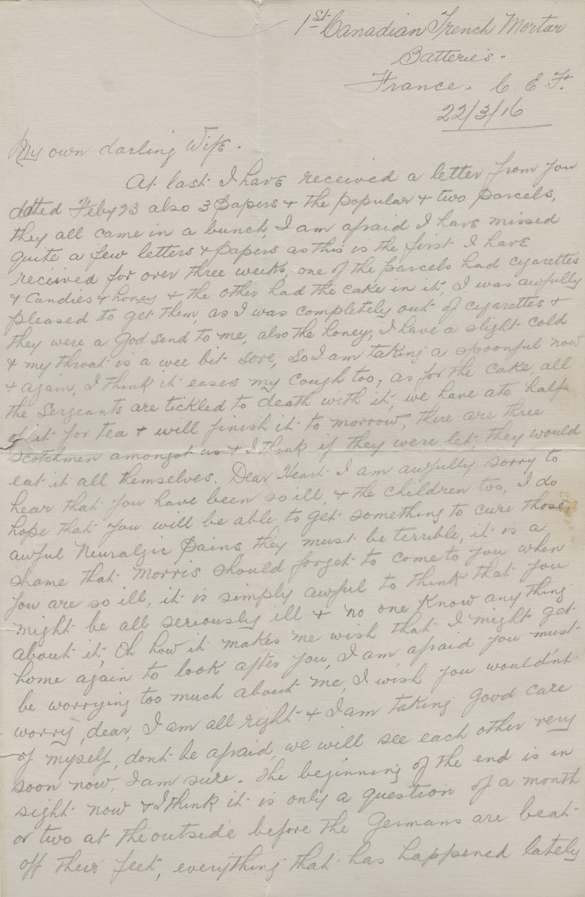 1st Canadian Trench Mortar
Batteries.
France. C. E. F.
22/3/16
My own darling Wife.
At last I have received a letter from you
dated Feby 23 also 3 Papers & the Popular & two Parcels,
they all came in a bunch, I am afraid I have missed
quite a few letters & papers as this is the first I have
received for over three weeks, one of the parcels had cigarettes
& Candies & honey & the other had the cake in it, I was awfully
pleased to get them, as I was completely out of cigarettes &
they were a God send to me, also the honey, I have a slight cold
& my throat is a wee bit sore, so I am taking a spoonful now
& again, I think it eases my cough too, as for the cake, all
the Sergeants are tickled to death with it, we have ate half
of it for tea & will finish it to morrow, there are three
Scotchmen amongst us & I think if they were let, they would
eat it all themselves. Dear Heart I am awfully sorry to
hear that you have been so ill & the children too, I do
hope that you will be able to get something to cure those
awful Neuralgic Pains they must be terrible, it is a
shame that Morris should forget to come to you when
you are so ill, it is simply awful to think that you
might be all seriously ill & no one know any thing
about it, Oh how it makes me wish that I might get
home again to look after you, I am afraid you must
be worrying too much about me, I wish you wouldn't
worry, dear, I am all right & I am taking good care
of myself, dont be afraid, we will see each other very
soon now, I am sure. The beginning of the end is in
sight now & I think it is only a question of a month
or two at the outside before the Germans are beat
off their feet, everything that has happened lately